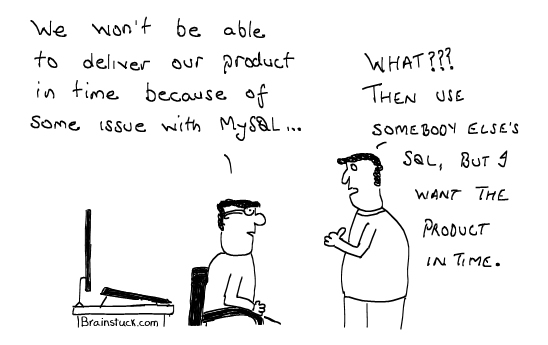 We won't be able
to deliver our product
in time because of
some issue with MySQL...
WHAT???
THEN USE
SOMEBODY ELSE'S
SQL, BUT I
WANT THE
PRODUCT
IN TIME.
Brainstuck.com